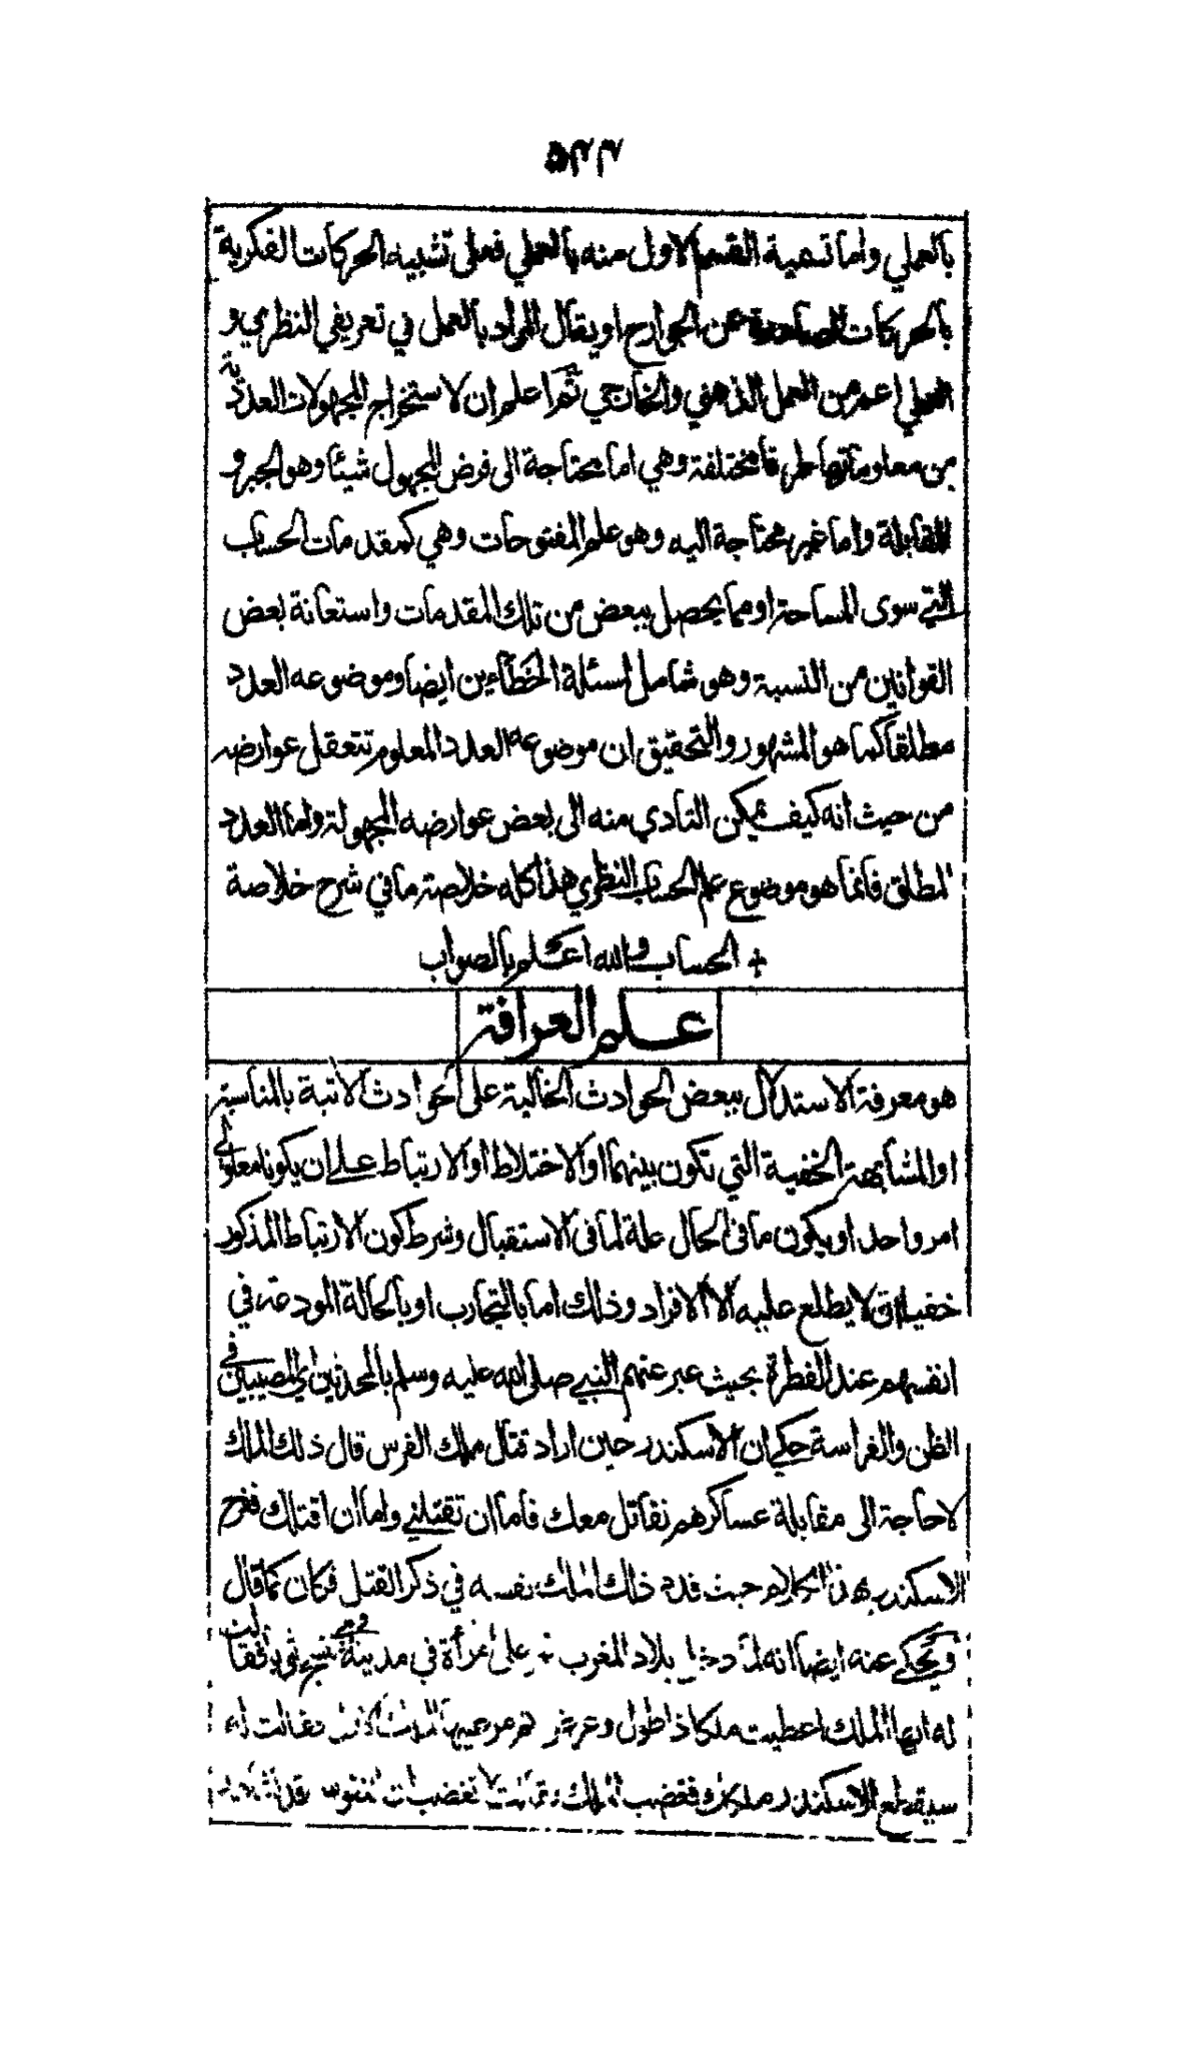 ٥٢٣
بالعملي واما تسمية القسم الاول منه بالعملي فعلى تشبيه الحركات الفكرية
بالحركات الصادرة عن الجوارح او يقال المراد بالعمل في تعريفي النظري و
العملي اعم من العمل الذهني والخارجي ثم اعلم ان لاستخراج المجهولات العددية
من معلوماتها طرقا مختلفة وهي اما محتاجة الى فرض المجهول شيئا وهو الجبر و
المقابلة واما غير محتاجة اليه وهو علم المفتوحات وهي كمقدمات الحساب
التي سوى المساحة او مما يحصل ببعض من تلك المقدمات واستعانة بعض
القوانين من النسبة وهو شامل لسئلة الخطاءين ايضا وموضوعه العدد
مطلقا كما هو المشهور والتحقيق ان موضوعه العدد المعلوم تتعقل عوارضه
من حيث انه كيف يمكن التادي منه الى بعض عوارضه المجهولة واما العدد
المطلق فانما هو موضوع علم الحساب النظري هذا كله خلاصة ما في شرح خلاصة
الحساب والله اعلم بالصواب
علم العرافة
هو معرفة الاستدلال ببعض الحوادث الخالية على الحوادث الآتية بالمناسبة
او المشابهة الخفية التي تكون بينهما او الاختلاط او الارتباط على ان يكونا معلولي
امر واحد او يكون ما في الحال علة لما في الاستقبال وشرط كون الارتباط المذكور
خفيا ان لا يطلع عليه الا الافراد وذلك اما بالتجارب او بالحالة المودعة في
انفسهم عند الفطرة بحيث عبر عنهم النبي صلى الله عليه وسلم بالمحدثين اي المصيبين في
الظن والفراسة حكي ان الاسكندر حين اراد قتال ملك الفرس قال ذلك الملك
لا حاجة الى مقابلة عساكرهم نقاتل معك فاما ان تقتلني واما ان اقتلك ففرح
الاسكندر بهذا الكلام حيث قدم ذلك الملك نفسه في ذكر القتل فكان كما قال
ويحكى عنه ايضا انه لما دخل بلاد المغرب على امرأة في مدينة وهي تنسج ثوبا فقالت
له ايها الملك اعطيت ملكا ذا طول وعرض فقالت له
سيقطع الاسكندر ملكك فغضب الملك فقالت لا تغضب